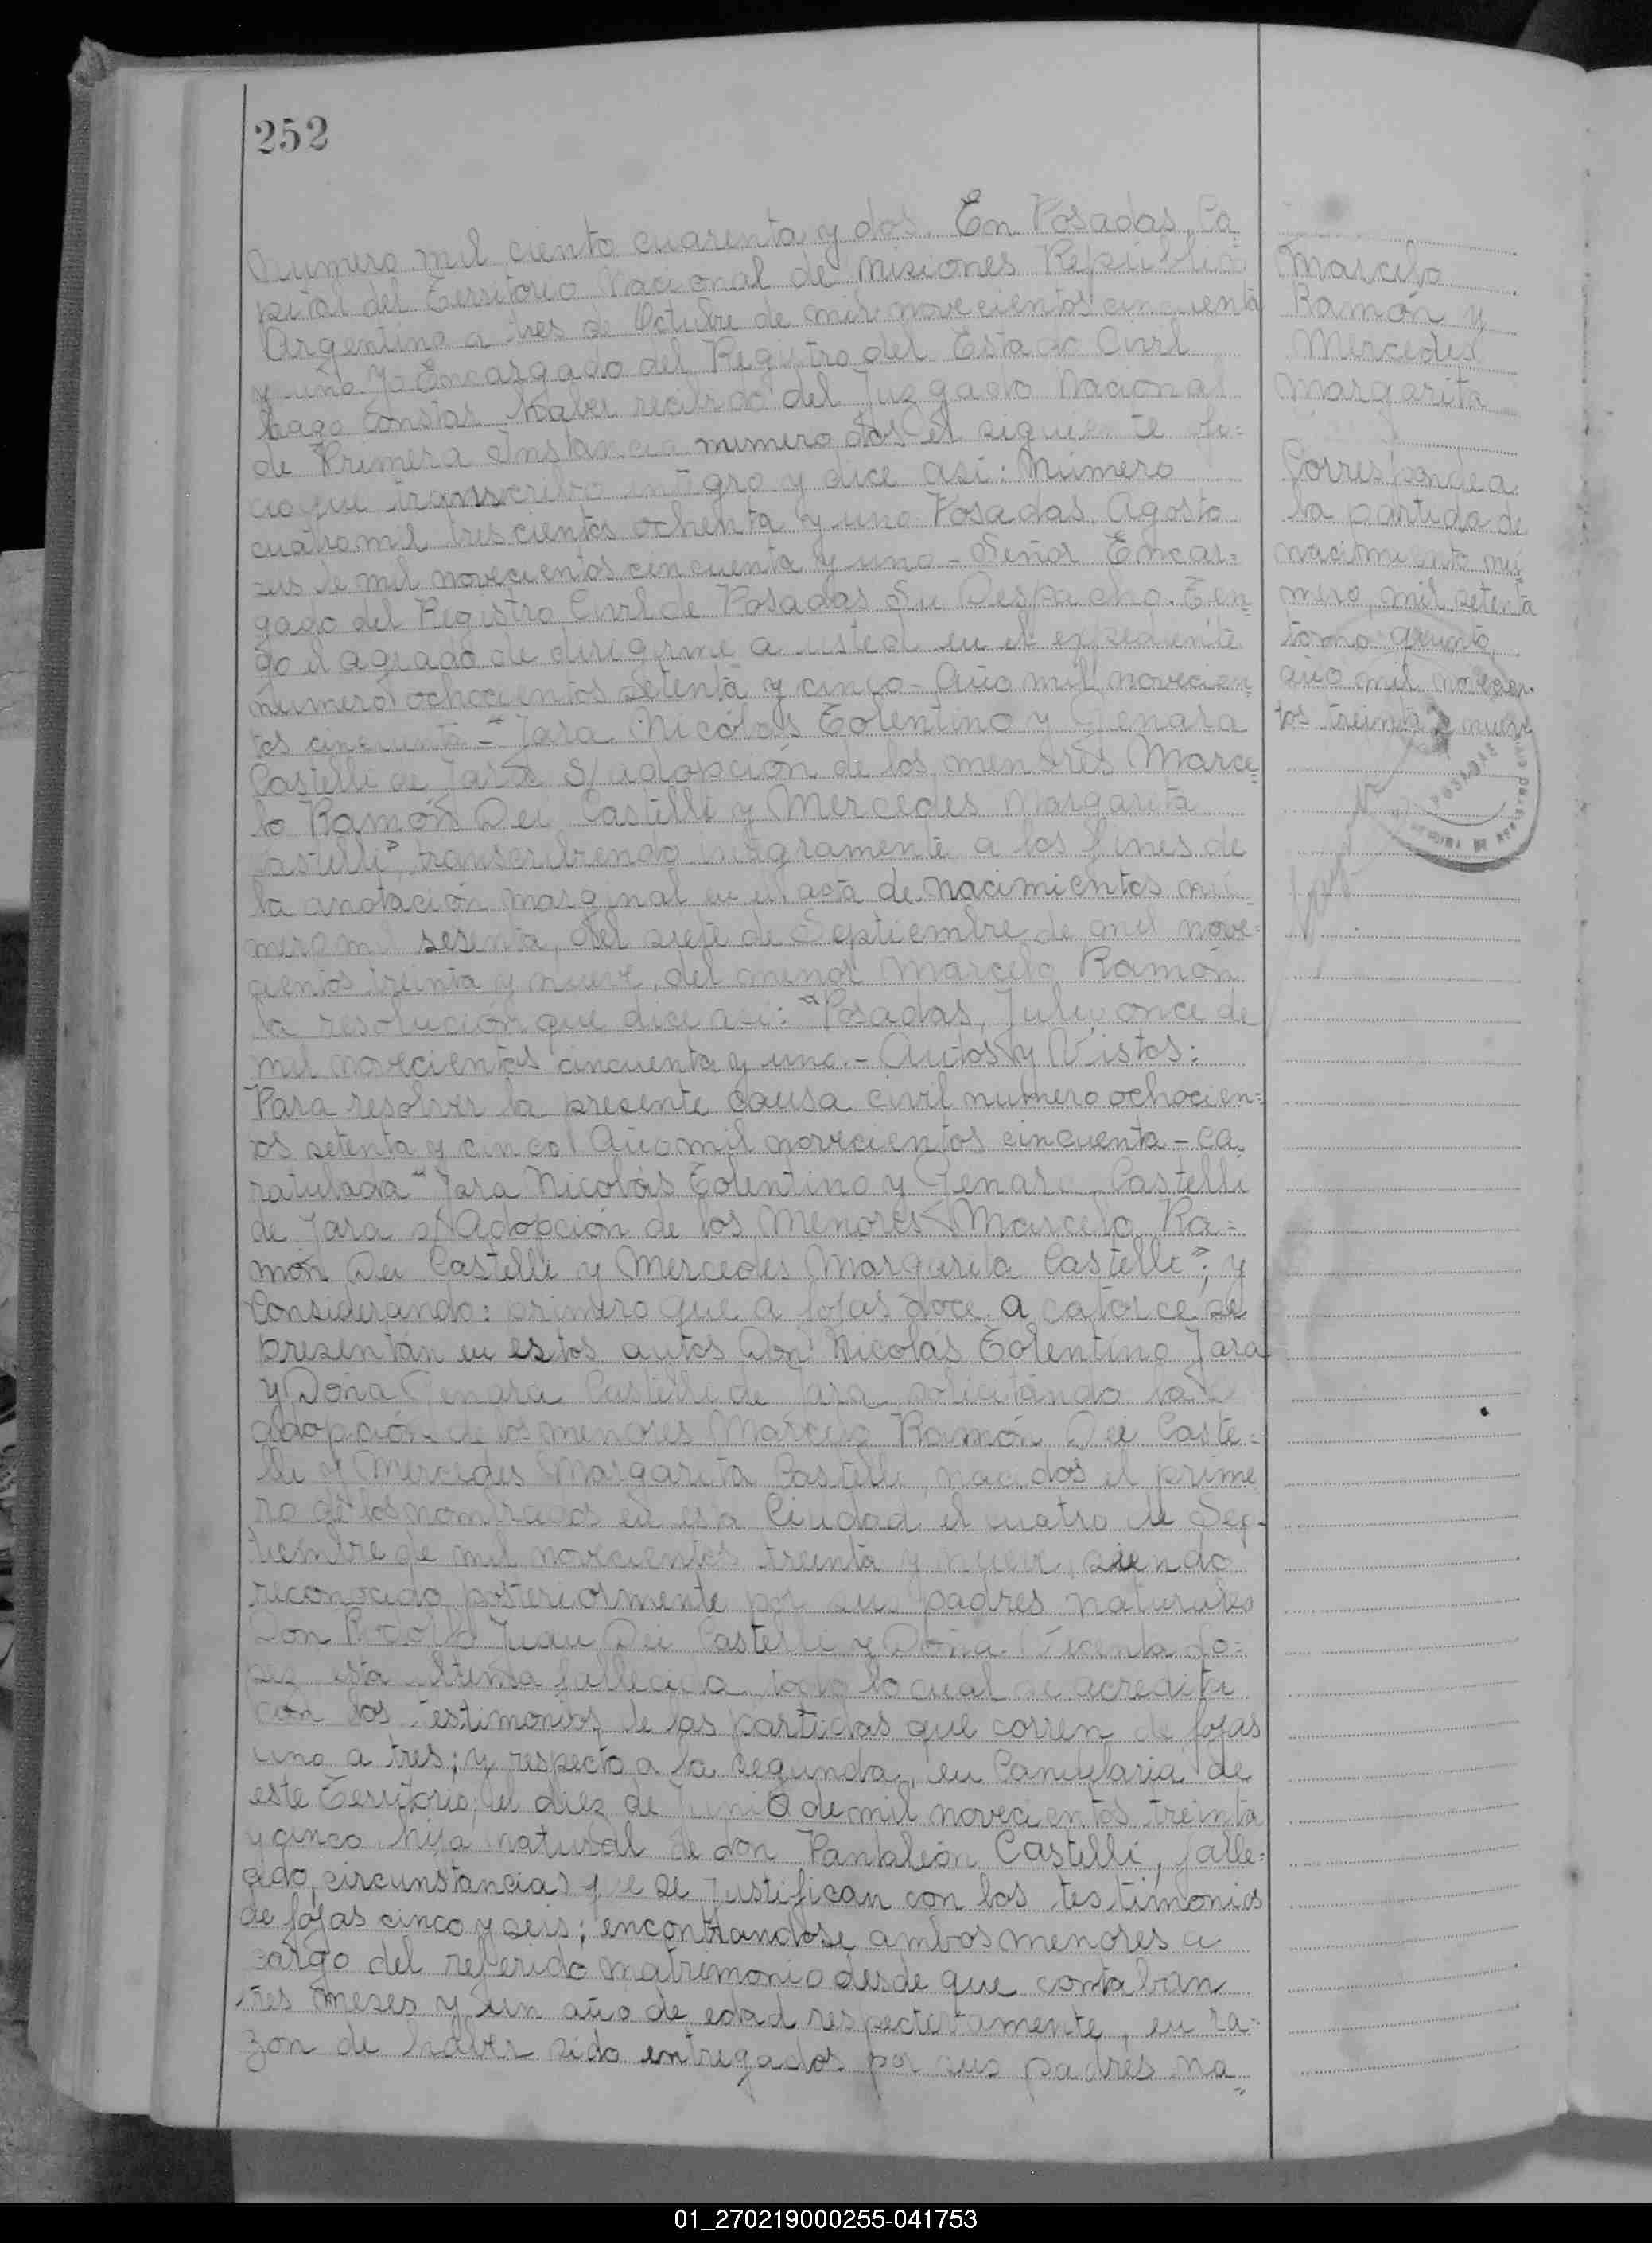 252
Numero mil ciento cuarenta y dos. En Posadas, Ca-
pital del Territorio Nacional de Misiones República
Argentina a tres de Octubre de mil novecientos cincuenta
y uno. Yo Encargado del Registro del Estado Civil
hago constar haber recibido del Juzgado Nacional
de Primera Instancia numero dos el siguiente ofi=
cio que transcribo integro y dice asi: Número
cuatro mil trescientos ochenta y uno Posadas, Agosto
seis de mil novecientos cincuenta y uno - Señor Encar=
gado del Registro Civil de Posadas Su Despacho. Ten=
go el agrado de dirigirme a usted en el expediente
número ochocientos setenta y cinco - Año mil novecien=
tos cincuenta - "Jara Nicolás Tolentino y Genara
Castelli de Jara S/ adopción de los menores Marce=
lo Ramón Dei Castelli y Mercedes Margarita
Castelli", transcribiendo integramente a los fines de
la anotación marginal en el acta de nacimientos nú=
mero mil sesenta, del siete de Septiembre de mil nove=
cientos treinta y nueve, del menor Marcelo Ramón
la resolución que dice asi: "Posadas, Julio once de
mil novecientos cincuenta y uno. - Autos y Vistos:
Para resolver la presente causa civil numero ochocien=
tos setenta y cinco Año mil novecientos cincuenta - ca=
ratulada "Jara Nicolás Tolentino y Genara Castelli
de Jara s/ Adopción de los Menores Marcelo Ra=
món Dei Castelli y Mercedes Margarita Castelli"; y
Considerando: primero que a fojas doce a catorce se
presentán en estos autos Don Nicolás Tolentino Jara
y Doña Genara Castelli de Jara solicitándo la
adopción de los menores Marcelo Ramón Dei Caste=
lli y Mercedes Margarita Castelli, nacidos el prime
ro de los nombrados en esta Ciudad el cuatro de Sep-
tiembre de mil novecientos treinta y nueve, siendo
reconocido posteriormente por sus padres naturales
Don Rodolfo Juan Dei Castelli y Doña Vicenta Lo=
pez esta última fallecida todo lo cual se acredita
con los testimonios de las partidas que corren de fojas
uno a tres; y respecto a la segunda, en Candelaria de
este Territorio, el diez de Junio de mil novecientos treinta
y cinco hija natural de don Pantaleón Castelli, falle=
cido, circunstancias que se justifican con los testimonios
de fojas cinco y seis; encontrandose ambos menores a
cargo del referido matrimonio desde que contaban
tres meses y un año de edad respectivamente, en ra=
zon de haber sido entregados por sus padres na=
Marcelo
Ramón y
Mercedes
Margarita
Corresponde a
la partida de
nacimiento nú
mero, mil setenta
tomo quinto
año mil novecien-
tos treinta y nueve
POSADAS
01_270219000255-041753